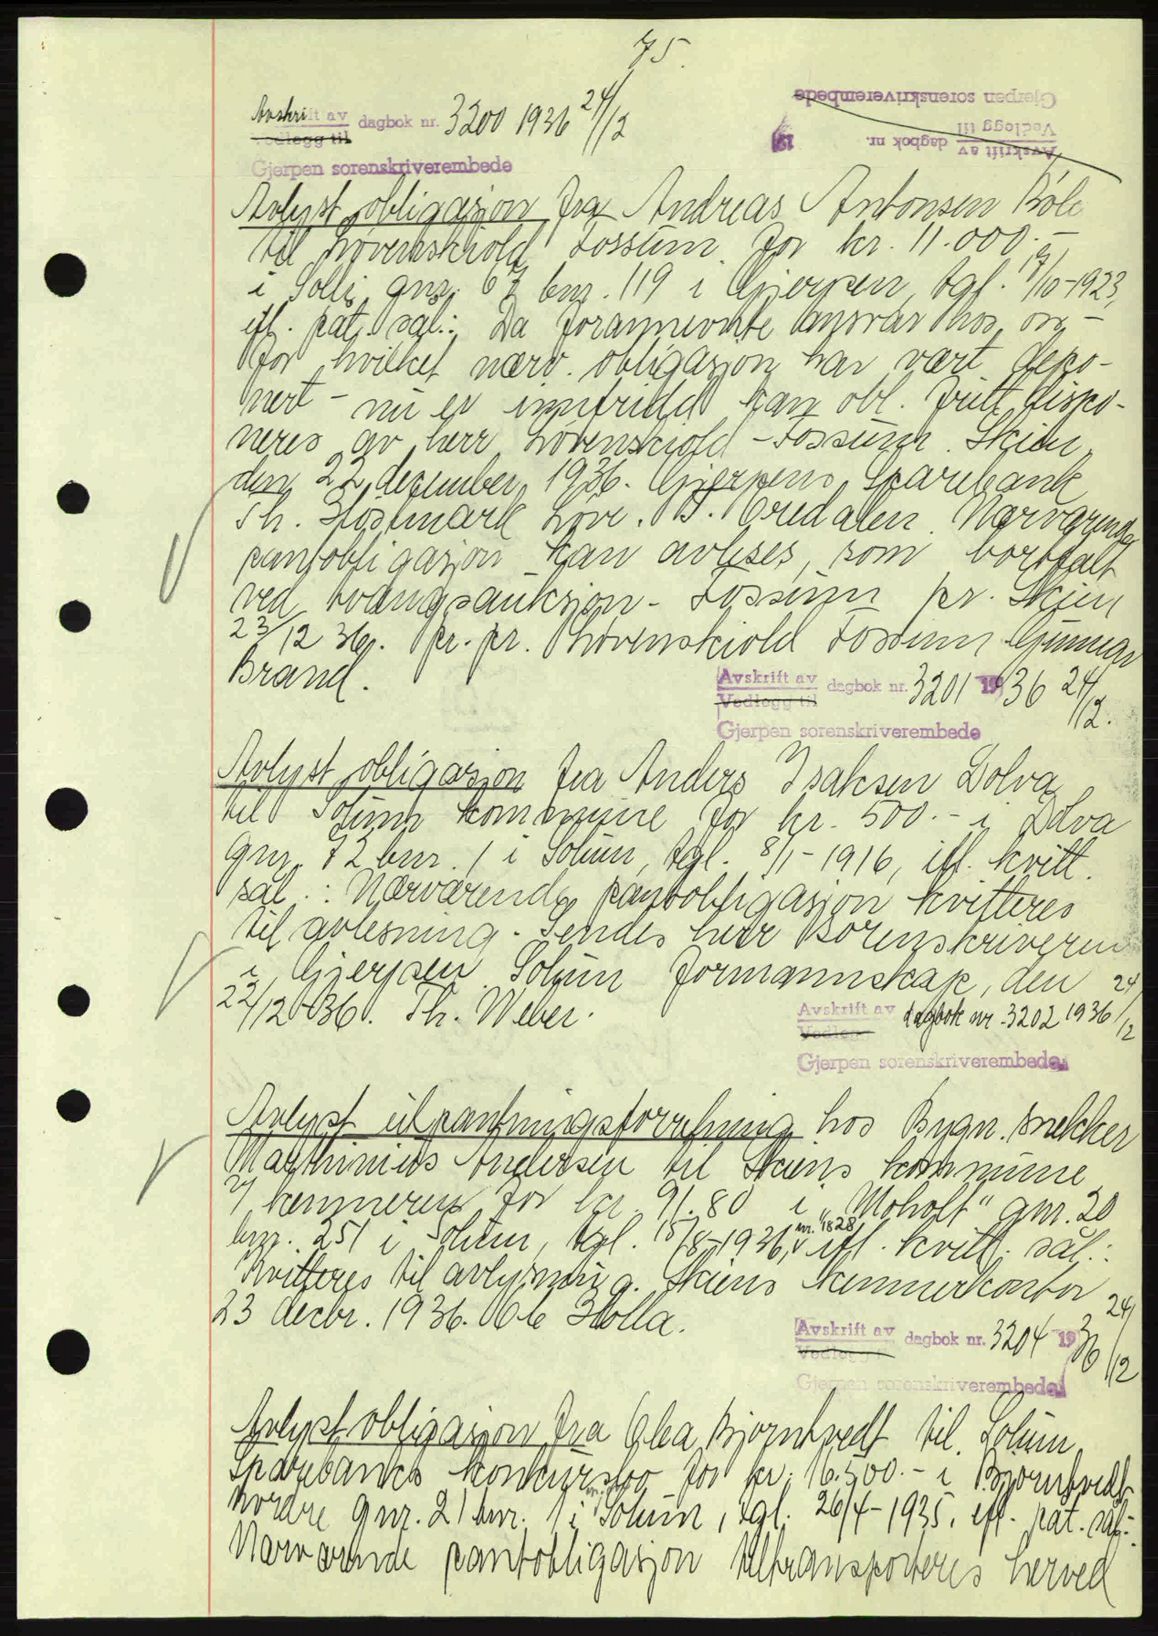 75.
Avskrift av dagbok nr. 3200 1936 24/12
Vedlegg til
Gjerpen sorenskriverembede
Avskrift av dagbok nr. 19
Vedlegg til
Gjerpen sorenskriverembede
Avlyst obligasjon fra Andreas Antonsen Bøle
til Løvenskiold Fossum for kr. 11.000.-
i Solli gnr. 67 bnr. 119 i Gjerpen, tgl. 17/10-1923,
ifl. påt. sål.: Da forannevnte ansvar hos oss -
for hvilket nærv. obligasjon har vært depo-
nert - nu er innfridd kan obl. fritt dispo-
neres av herr Løvenskiold - Fossum. Skien,
den 22 desember 1936. Gjerpens Sparebank
Th. Holtmark Love. B. Gredalen. Nærværende
pantobligasjon kan avleses, som bortfalt
ved tvangsauksjon - Fossum pr. Skien
23/12 36. pr. pr. Løvenskiold Fossum Gunnar
Brand.
Avskrift av dagbok nr. 3201 1936 24/12.
Vedlegg til
Gjerpen sorenskriverembede
Avlyst obligasjon fra Anders Isaksen Dolva
til Solum kommune for kr. 500.- i Dolva
gnr. 72 bnr. 1 i Solum, tgl. 8/1-1916, ifl. kvitt.
sål.: Nærværende pantobligasjon kvitteres
til avlesning. Sendes herr Sorenskriveren
i Gjerpen. Solum formannskap, den
22/12-36. Th. Weber.
Avskrift av dagbok nr. 3202 1936 24/12
Vedlegg
Gjerpen sorenskriverembede
Avlyst utpantningsforretning hos Bygn. snekker
Marthinius Andersen til Skiens kommune
v/ kemneren for kr. 91.80 i "Moholt" gnr. 20
bnr. 251 i Solum, tgl. 15/8-1936, nr. 1828 ifl. kvitt. sål.:
Kvitteres til avlysning. Skiens kemnerkontor
23 decbr. 1936. Ole Holla.
Avskrift av dagbok nr. 3204 1936 24/12
Vedlegg
Gjerpen sorenskriverembede
Avlyst obligasjon fra Olea Bjørntvedt til Solum
Sparebanks konkursbo for kr. 16.500.- i Bjørntvedt
nordre gnr. 21 bnr. 1 i Solum, tgl. 26/4-1935, ifl. påt. sål.:
Nærværende pantobligasjon tiltransporteres herved